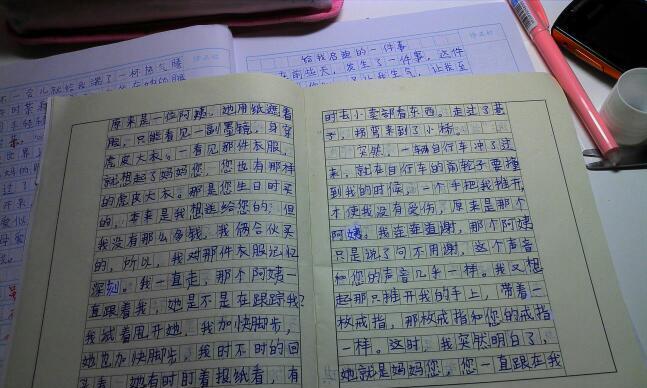 给我启迪的一件事
在前些天，发生了一件事，这件
又让我生气，让我至
一会儿就给我端了一杯热气腾
原来是一位阿姨，她用纸遮着
脸，只能看见一副墨镜，身穿
虎皮大衣。一看见那件衣服，
就想起了妈妈您，您也有那样
的虎皮大衣。那是您生日时买
的，本来是我想送给您的，但
我没有那么多钱，我俩合伙买
的，所以，我对那件衣服记忆
深刻。我一直走，那个阿姨一
直跟着我，她是不是在跟踪我？
我试着甩开她，我加快脚步，
她也加快脚步，我时不时的回
头看，她有时盯着报纸看，有
时去小卖部看东西。走过了巷
子，拐弯来到了小桥。
突然，一辆自行车冲了过
来，就在自行车的前轮子要撞
到我的时候，一个手把我推开，
才使我没有受伤，原来是那个
阿姨，我连连道谢，那个阿姨
只是说了句不用谢，这个声音
和您的声音几乎一样。我又想
起那只推开我的手上，带着一
枚戒指，那枚戒指和您的戒指
一样。这时，我突然明白了，
她就是妈妈您，您一直跟在我